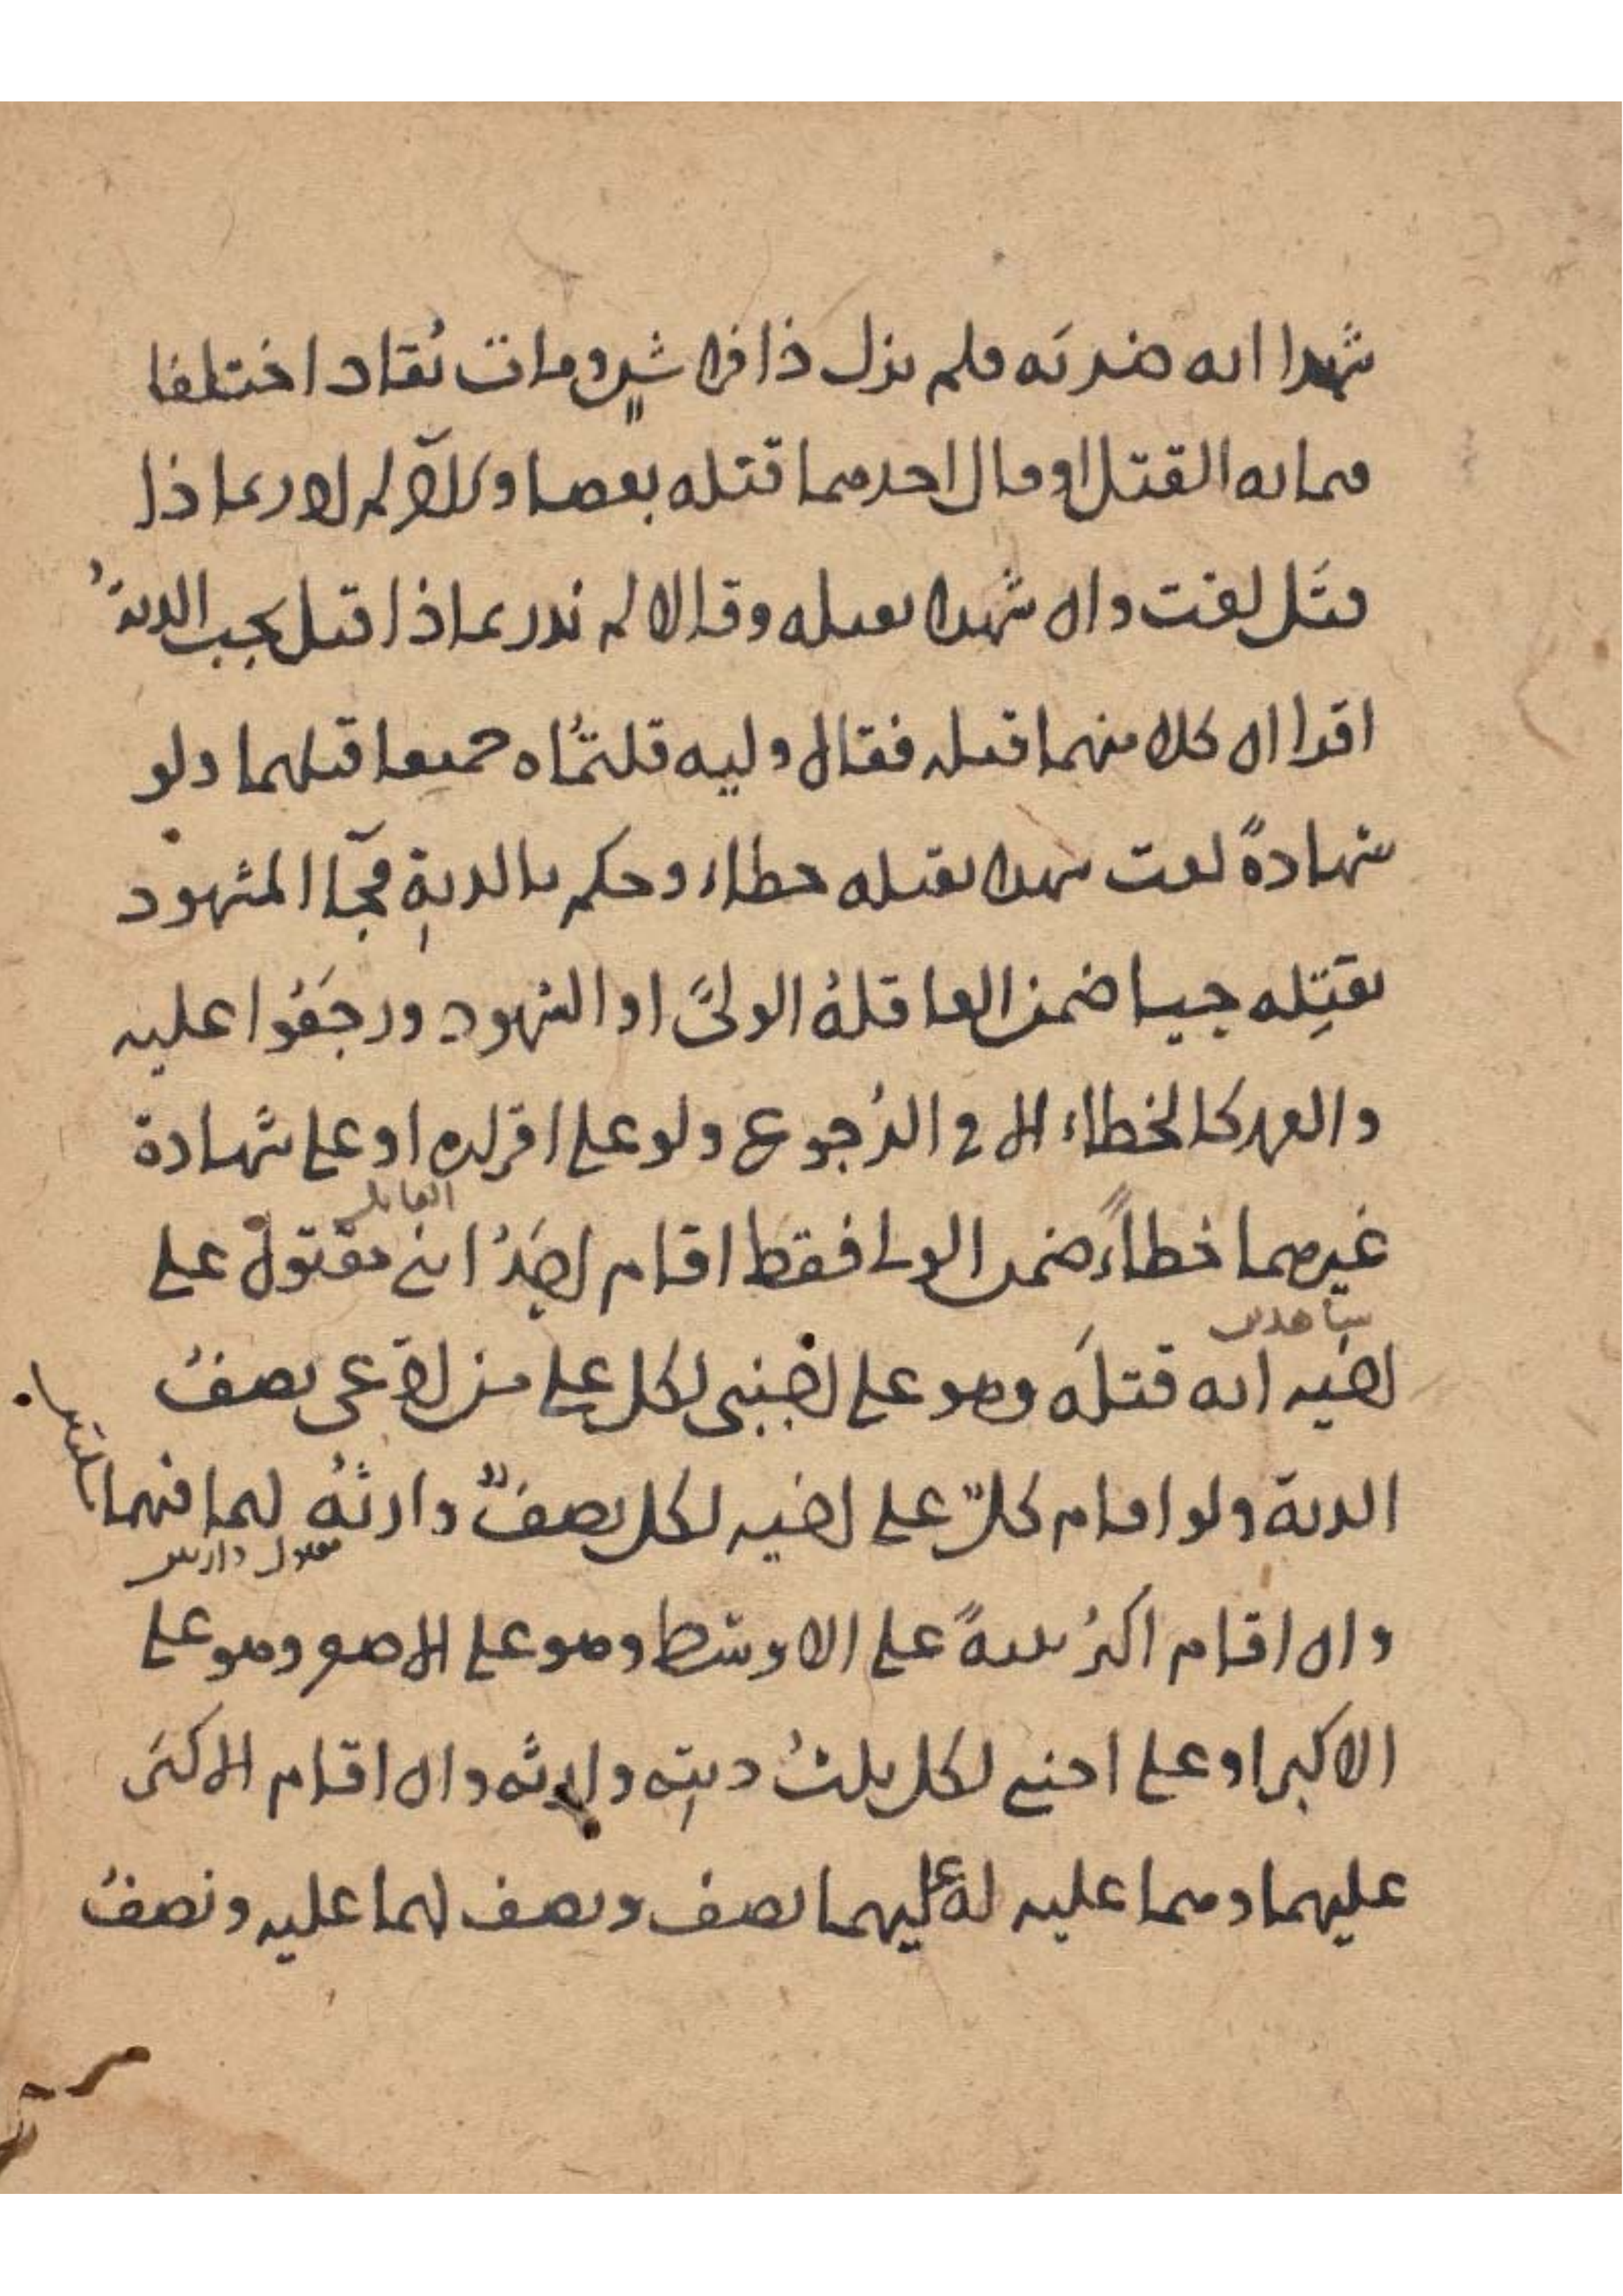 شهدا انه ضربه فلم يزل ذا فراش ومات يقاد اختلفا
زمانه القتل او قال احدهما قتله بعصا وقال لم ادر بماذا
قتل لغت وان شهدا بقتله وقالا لم ندر بماذا قتل يجب الدية
اقرا ان كلا منهما قتله فقال وليه قتلتماه جميعا قتلهما ولو
شهادة لغت شهدا بقتله خطاء وحكم بالدية فجآ المشهود
بقتله حيا ضمن العاقلة الولي او الشهود ورجعوا عليه
والعمد كالخطاء الا في الرجوع ولو على اقراره او على شهادة
غيرهما خطاء ضمن الولي فقط اقام احد ابني مقتول على
القاتل
شاهدين
اخيه انه قتله وهو على اجنبي لكل على من ادعى نصف
الدية ولو اقام كل على اخيه لكل نصف وارثه لهما
وان اقام اكبر بينة على الاوسط وهو على الاصغر وهو على
الاكبر او على اجنبي لكل ثلث ديته وارثه وان اقام الاكبر
عليهما وهما عليه له عليهما نصف ونصف لهما عليه ونصف